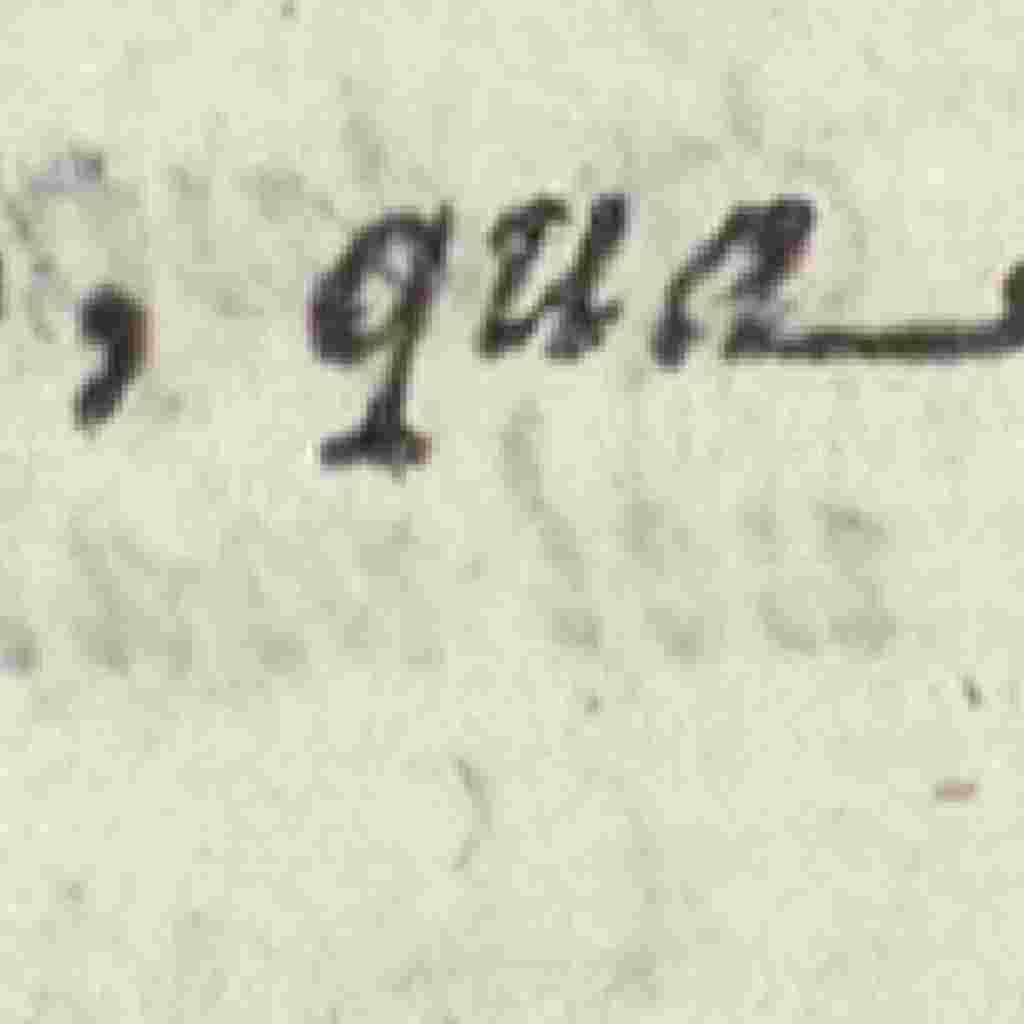 , qua